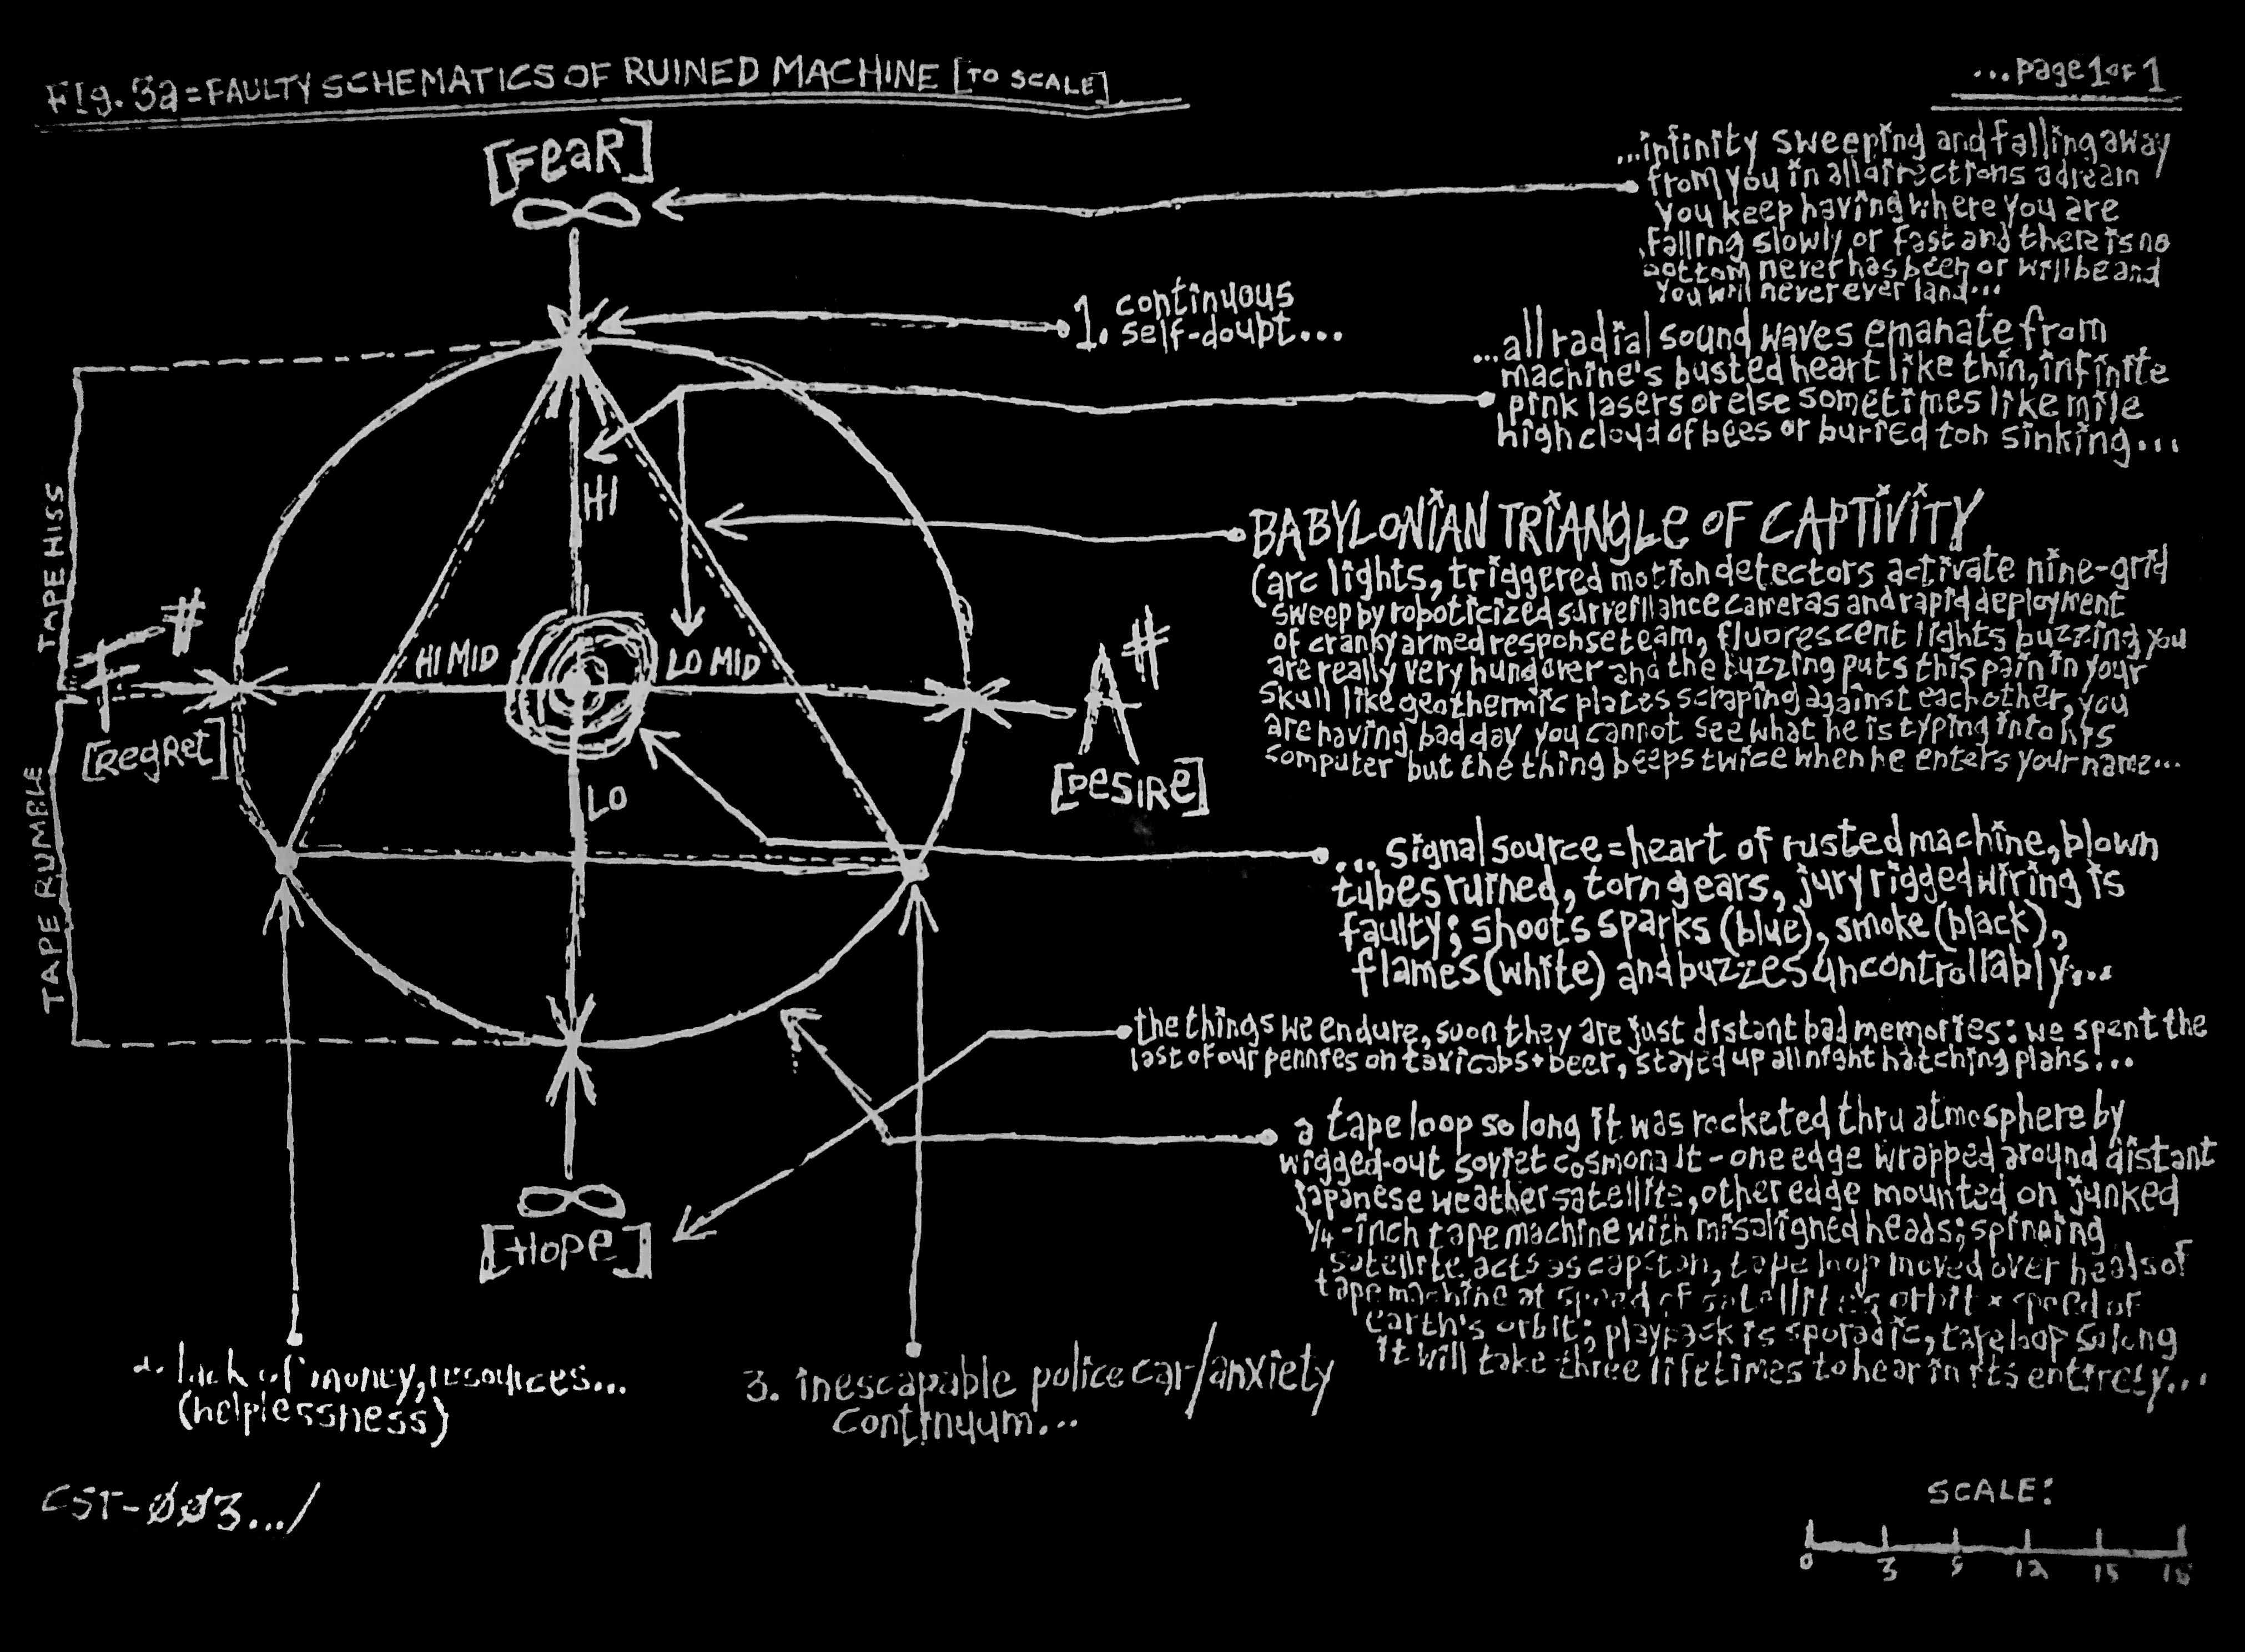 Fig. 3a = FAULTY SCHEMATICS OF RUINED MACHINE [TO SCALE]
...page 1 of 1
[FeaR]
∞
...infinity sweeping and falling away
from you in all directions a dream
you keep having where you are
falling slowly or fast and there is no
bottom never has been or will be and
you will never ever land...
1. continuous
self-doubt...
...all radial sound waves emanate from
machine's busted heart like thin, infinite
pink lasers or else sometimes like mile
high cloud of bees or buried ton sinking...
HI
TAPE HISS
BABYLONIAN TRIANGLe OF CAPTIVITY
(arc lights, triggered motion detectors activate nine-grid
sweep by roboticized surveillance cameras and rapid deployment
of cranky armed response team, fluorescent lights buzzing you
are really very hungover and the buzzing puts this pain in your
skull like geothermic plates scraping against each other, you
are having bad day you cannot see what he is typing into his
computer but the thing beeps twice when he enters your name...
F#
[RegRet]
HI MID
LO MID
A#
[DeSIRe]
LO
TAPE RUMBLE
...signal source = heart of rusted machine, blown
tubes ruined, torn gears, jury rigged wiring is
faulty; shoots sparks (blue), smoke (black),
flames (white) and buzzes uncontrollably...
the things we endure, soon they are just distant bad memories: we spent the
last of our pennies on taxicabs + beer, stayed up all night hatching plans...
a tape loop so long it was rocketed thru atmosphere by
wigged-out soviet cosmonaut - one edge wrapped around distant
japanese weather satellite, other edge mounted on junked
1/4-inch tape machine with misaligned heads; spinning
satellite acts as capstan, tape loop moved over heads of
tape machine at speed of satellite's orbit × speed of
earth's orbit; playback is sporadic, tape loop so long
it will take three lifetimes to hear in its entirety...
∞
[Hope]
2. lack of money, resources...
(helplessness)
3. inescapable police car/anxiety
continuum...
CST-ØØ3.../
SCALE:
0 3 9 12 15 18